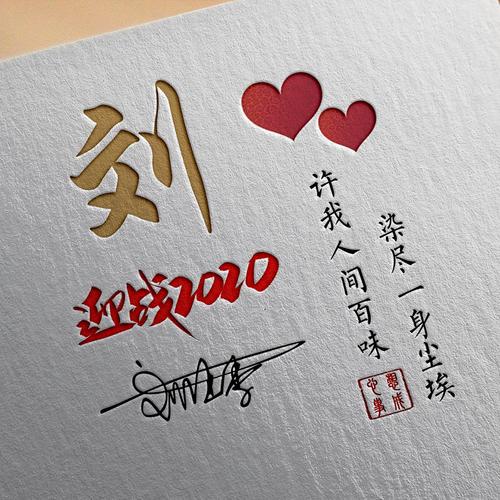 刘
迎战2020
许我人间百味
染尽一身尘埃
心想事成